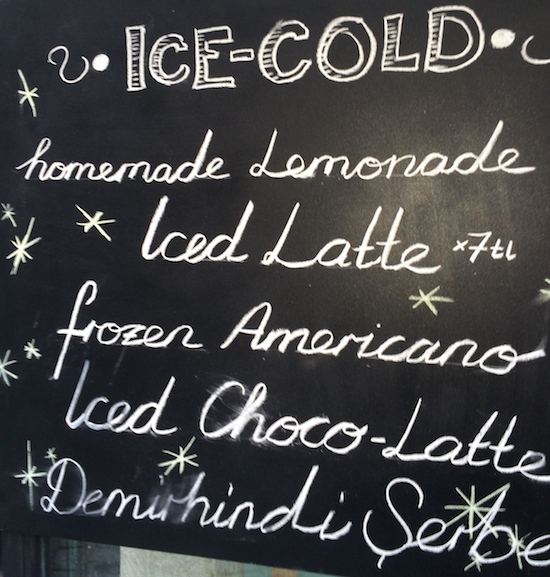 ICE-COLD
homemade Lemonade
Iced Latte *7tl
frozen Americano
Iced Choco-Latte
Demirhindi Şerbe